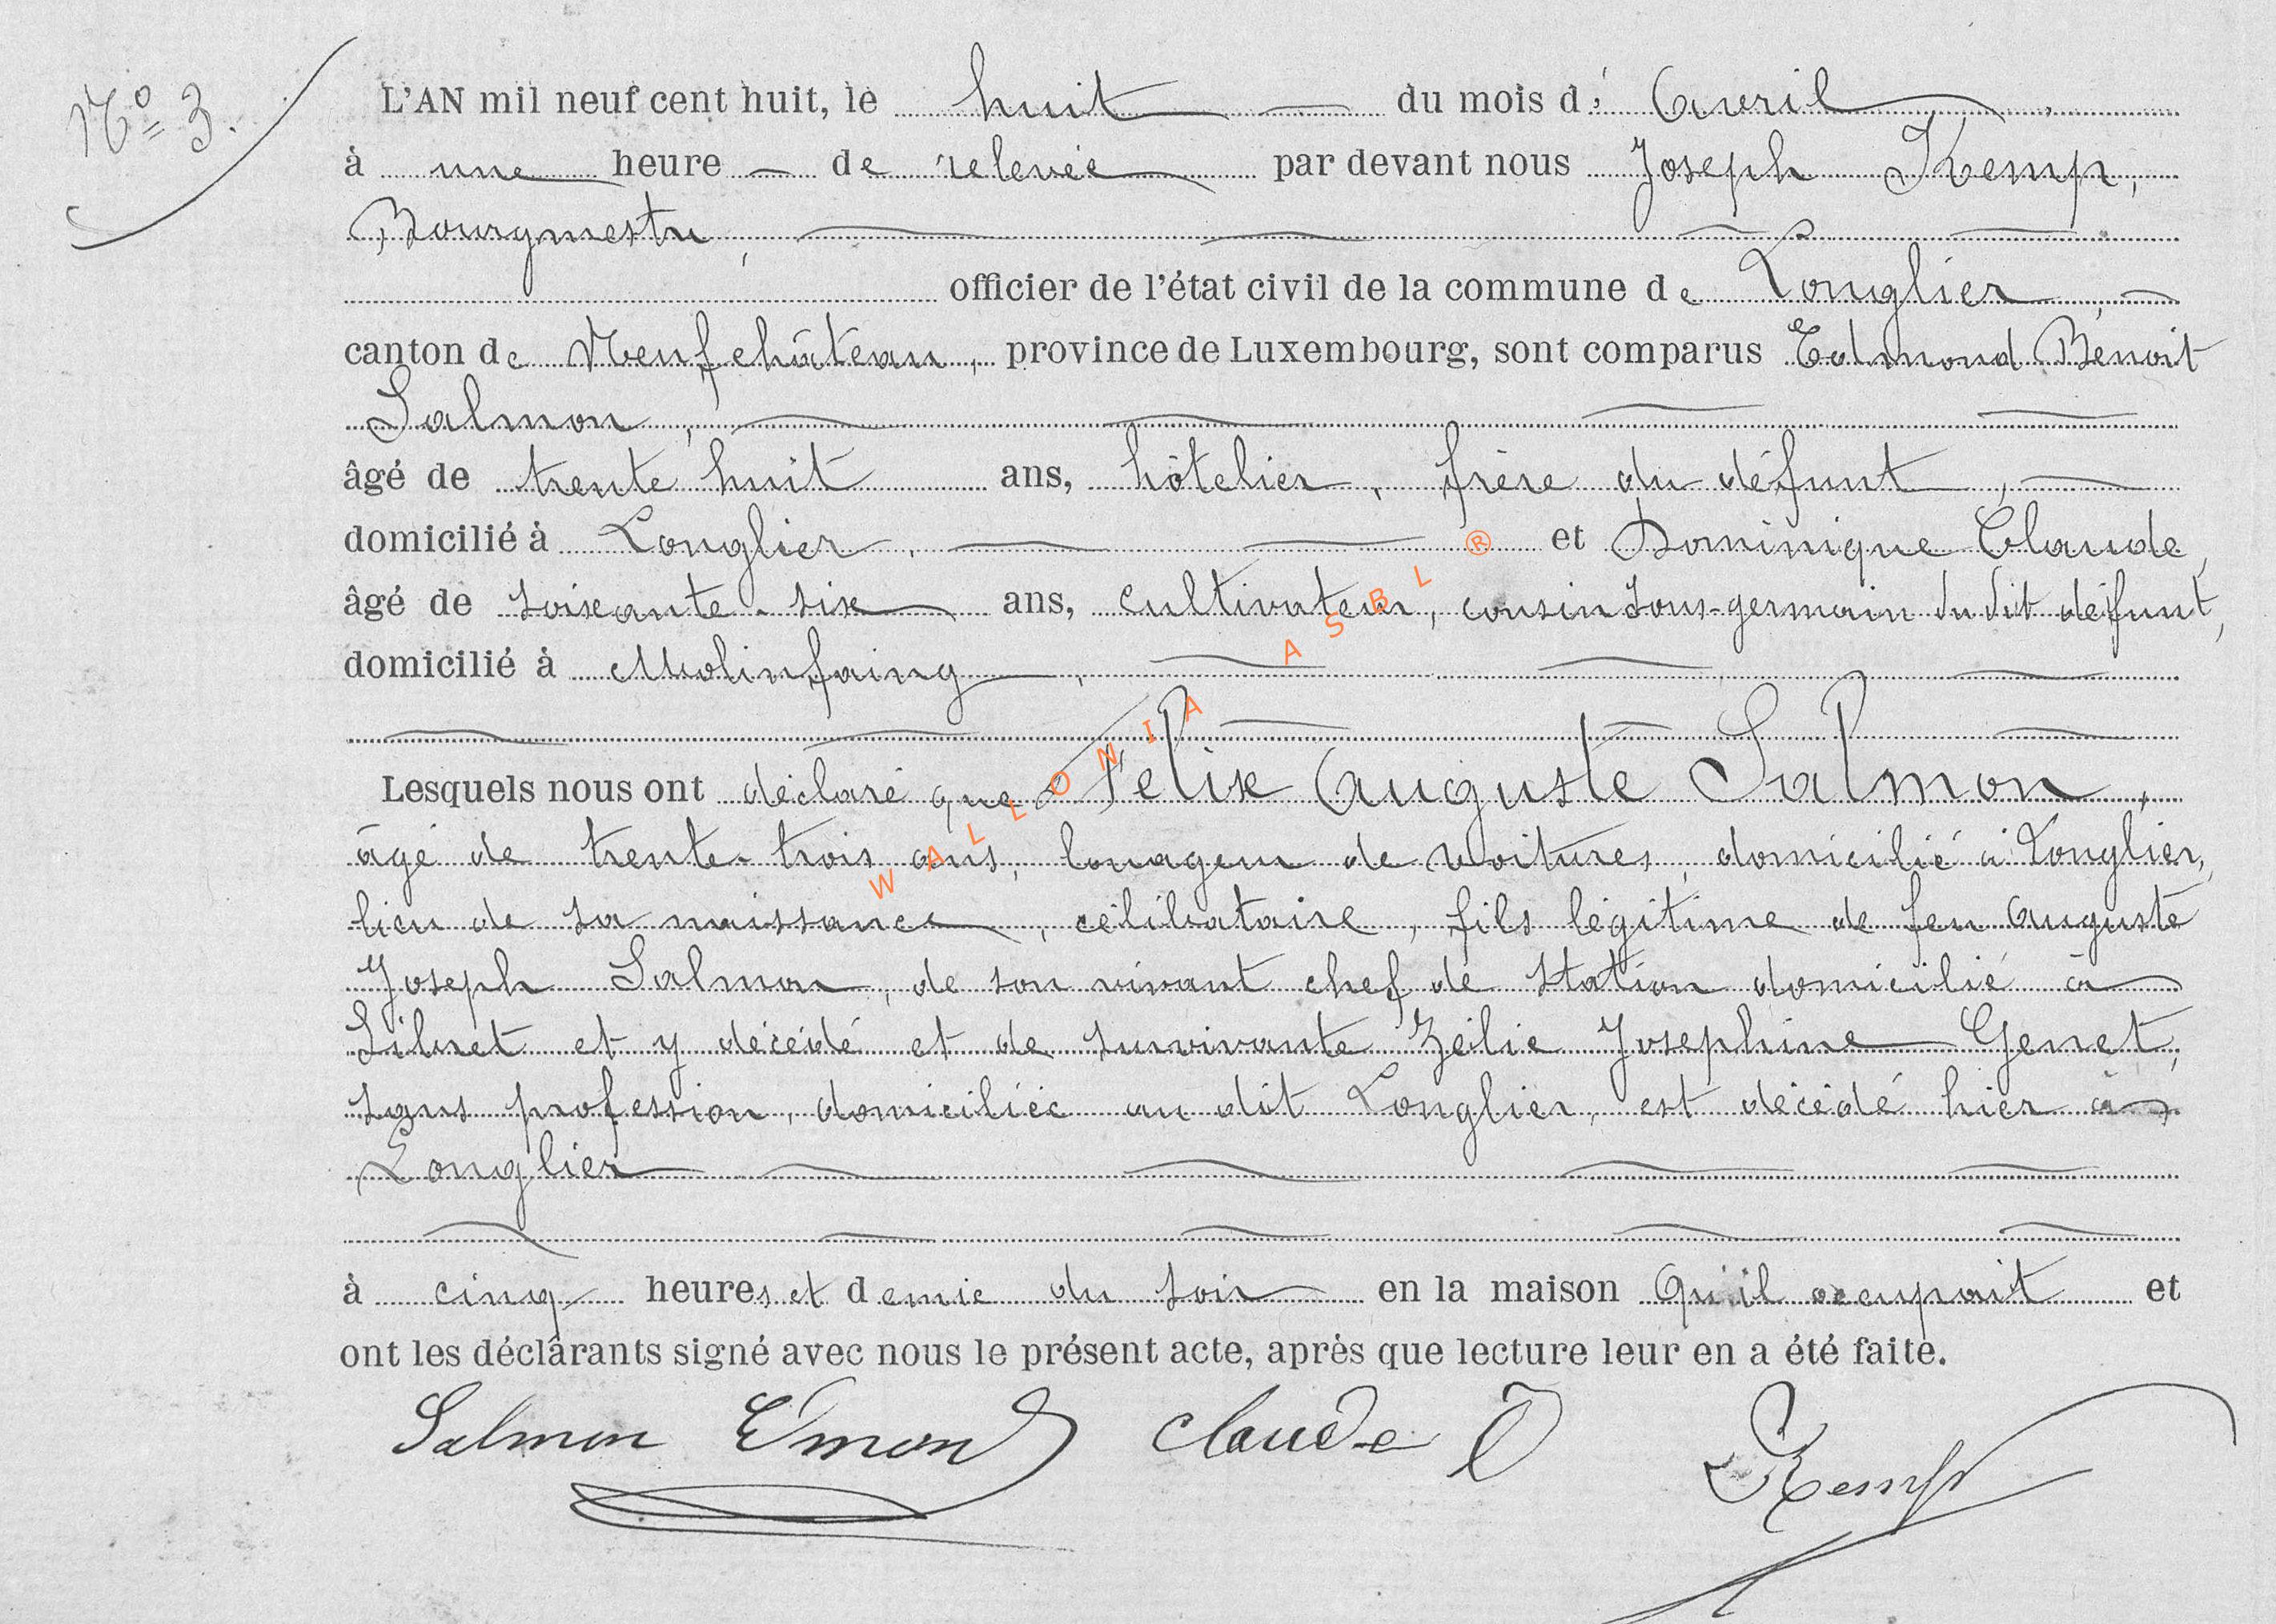 N° 3.
L'AN mil neuf cent huit, le huit du mois d' Avril
à une heure de relevée par devant nous Joseph Kemp,
Bourgmestre,
officier de l'état civil de la commune de Longlier,
canton de Neufchâteau, province de Luxembourg, sont comparus Edmond Benoit
Salmon,
âgé de trente huit ans, hôtelier, frère du défunt,
domicilié à Longlier, et Dominique Claude,
âgé de soixante-six ans, cultivateur, cousin sous-germain du dit défunt,
domicilié à Molinfaing,
Lesquels nous ont déclaré que Félix Auguste Salmon,
âgé de trente-trois ans, louageur de voitures, domicilié à Longlier,
lieu de sa naissance, célibataire, fils légitime de feu Auguste
Joseph Salmon, de son vivant chef de station domicilié à
Libret et y décédé et de survivante Zélie Josephine Genet,
sans profession, domiciliée au dit Longlier, est décédé hier à
Longlier
à cinq heures et demie du soir en la maison qu'il occupait et
ont les déclarants signé avec nous le présent acte, après que lecture leur en a été faite.
Salmon Emond Claude D Kemp
WALLONIA ASBL ®